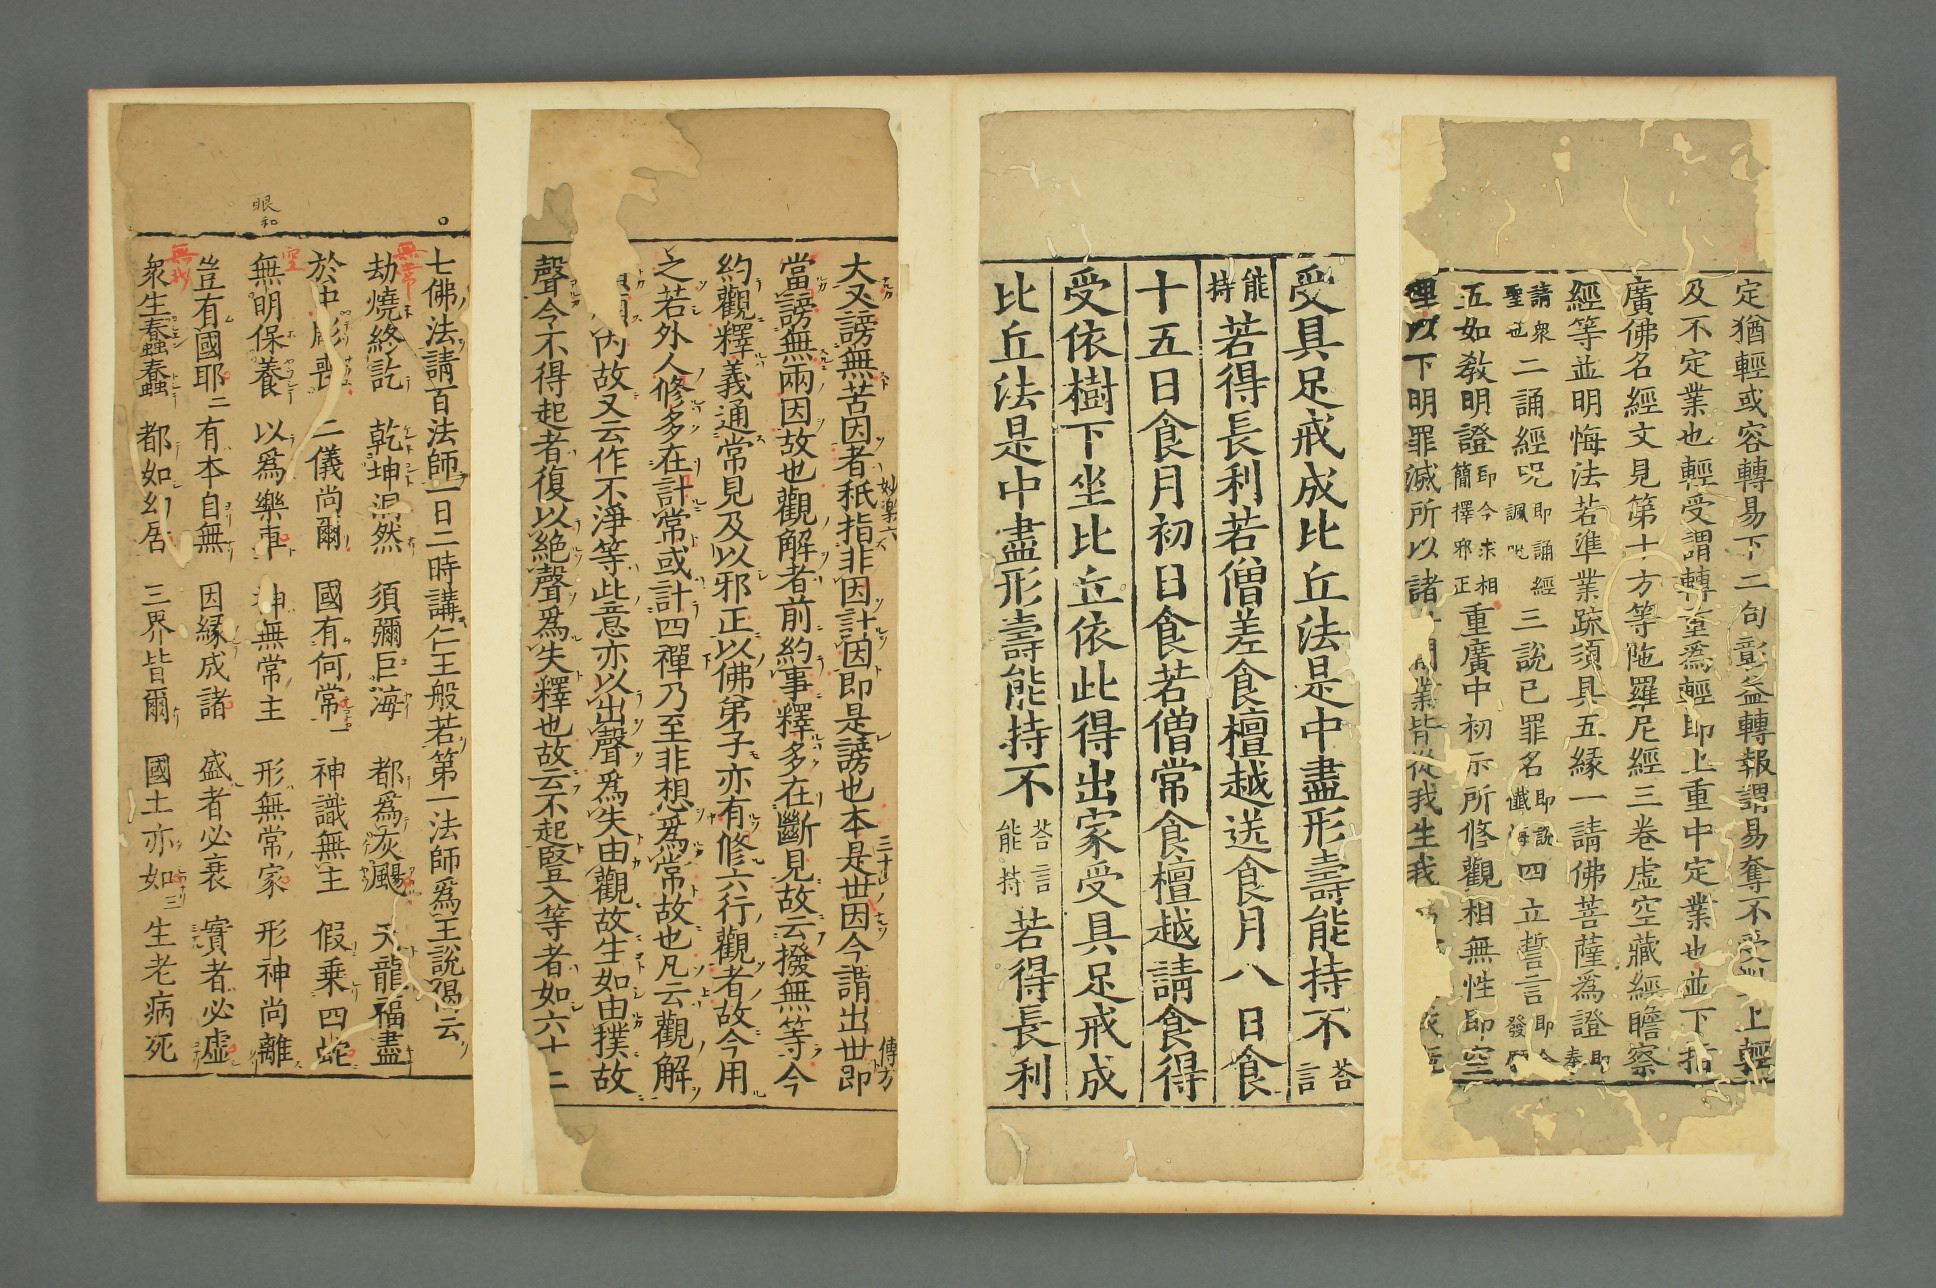 定猶輕或容轉易下二句彰益轉報謂易奪不受上輕
及不定業也輕受謂轉重爲輕即上重中定業也並下指
廣佛名經文見第十方等陁羅尼經三卷虛空藏經瞻察
經等並明悔法若準業疏須具五緣一請佛菩薩爲證即奉
請衆聖也二誦經呪即誦經諷呪三說已罪名即說懺悔四立誓言即今發願
五如教明證即今求相簡擇邪正重廣中初示所修觀相無性即空
理以下明罪滅所以諸業皆從我生我
受具足戒成比丘法是中盡形壽能持不荅言
能持若得長利若僧差食檀越送食月八日食
十五日食月初日食若僧常食檀越請食得
受依樹下坐比丘依此得出家受具足戒成
比丘法是中盡形壽能持不荅言能持若得長利
妙樂六
三十
傳方
大又謗無苦因者秖指非因計因即是謗也本是世因今謂出世即
當謗無兩因故也觀解者前約事釋多在斷見故云撥無等今
約觀釋義通常見及以邪正以佛弟子亦有修六行觀者故今用
之若外人修多在計常或計四禪乃至非想爲常故也凡云觀解
內故又云作不淨等此意亦以出聲爲失由觀故生如由撲故
聲令不得起者復以絕聲爲失釋也故云不起豎入等者如六十二
七佛法請百法師一日二時講仁王般若第一法師爲王說偈云
無常
劫燒終訖　乾坤洞然　須彌巨海　都爲灰颺　天龍福盡
於中彫喪　二儀尚爾　國有何常一　神識無主　假乗四蛇
眼和
空
無明保養　以爲樂車　神無常主　形無常家　形神尚離
豈有國耶二　有本自無　因緣成諸　盛者必衰　實者必虛
無我
衆生蠢蠢　都如幻居　三界皆爾　國土亦如三　生老病死